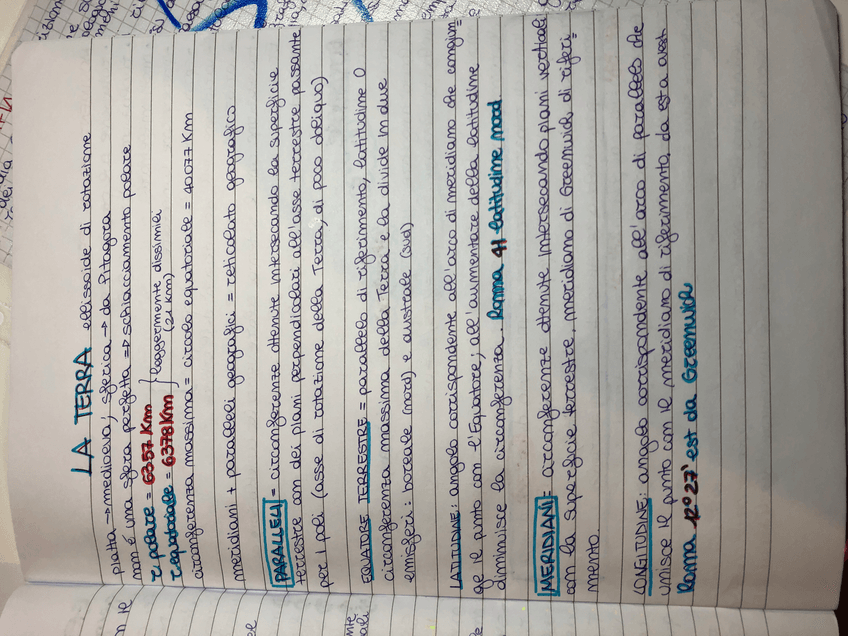 LA TERRA ellissoide di rotazione
piatta → medioevo, sferica → da Pitagora
non è una sfera perfetta => schiacciamento polare
r polare = 6357 Km } leggermente dissimili
r equatoriale = 6378 Km (21 km)
circonferenza massima = circolo equatoriale = 40077 Km
meridiani + paralleli geografici = reticolato geografico
PARALLELI = circonferenze ottenute intersecando la superficie
terrestre con dei piani perpendicolari all'asse terrestre passante
per i poli (asse di rotazione della Terra, di poco obliquo)
EQUATORE TERRESTRE = parallelo di riferimento, latitudine 0
circonferenza massima della Terra e la divide in due
emisferi: boreale (nord) e australe (sud)
LATITUDINE: angolo corrispondente all'arco di meridiano che congiun=
ge il punto con l'Equatore; all'aumentare della latitudine
diminuisce la circonferenza. Roma 41 latitudine nord
MERIDIANI = circonferenze ottenute intersecando piani verticali
con la superficie terrestre, meridiano di Greenwich, di riferi=
mento.
LONGITUDINE: angolo corrispondente all'arco di parallelo che
unisce il punto con il meridiano di riferimento, da est a ovest
Roma 12° 27' est da Greenwich